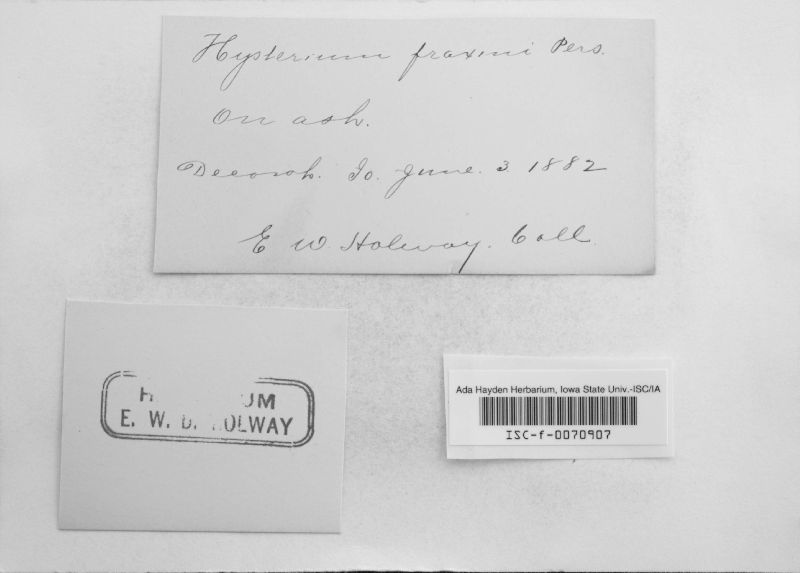 Hysterium fraxini Pers.
On ash.
Decorah. Io. June. 3. 1882
E W. Holway. Coll.
E. W. D. HOLWAY
Ada Hayden Herbarium, Iowa State Univ.-ISC/IA
ISC-f-0070907